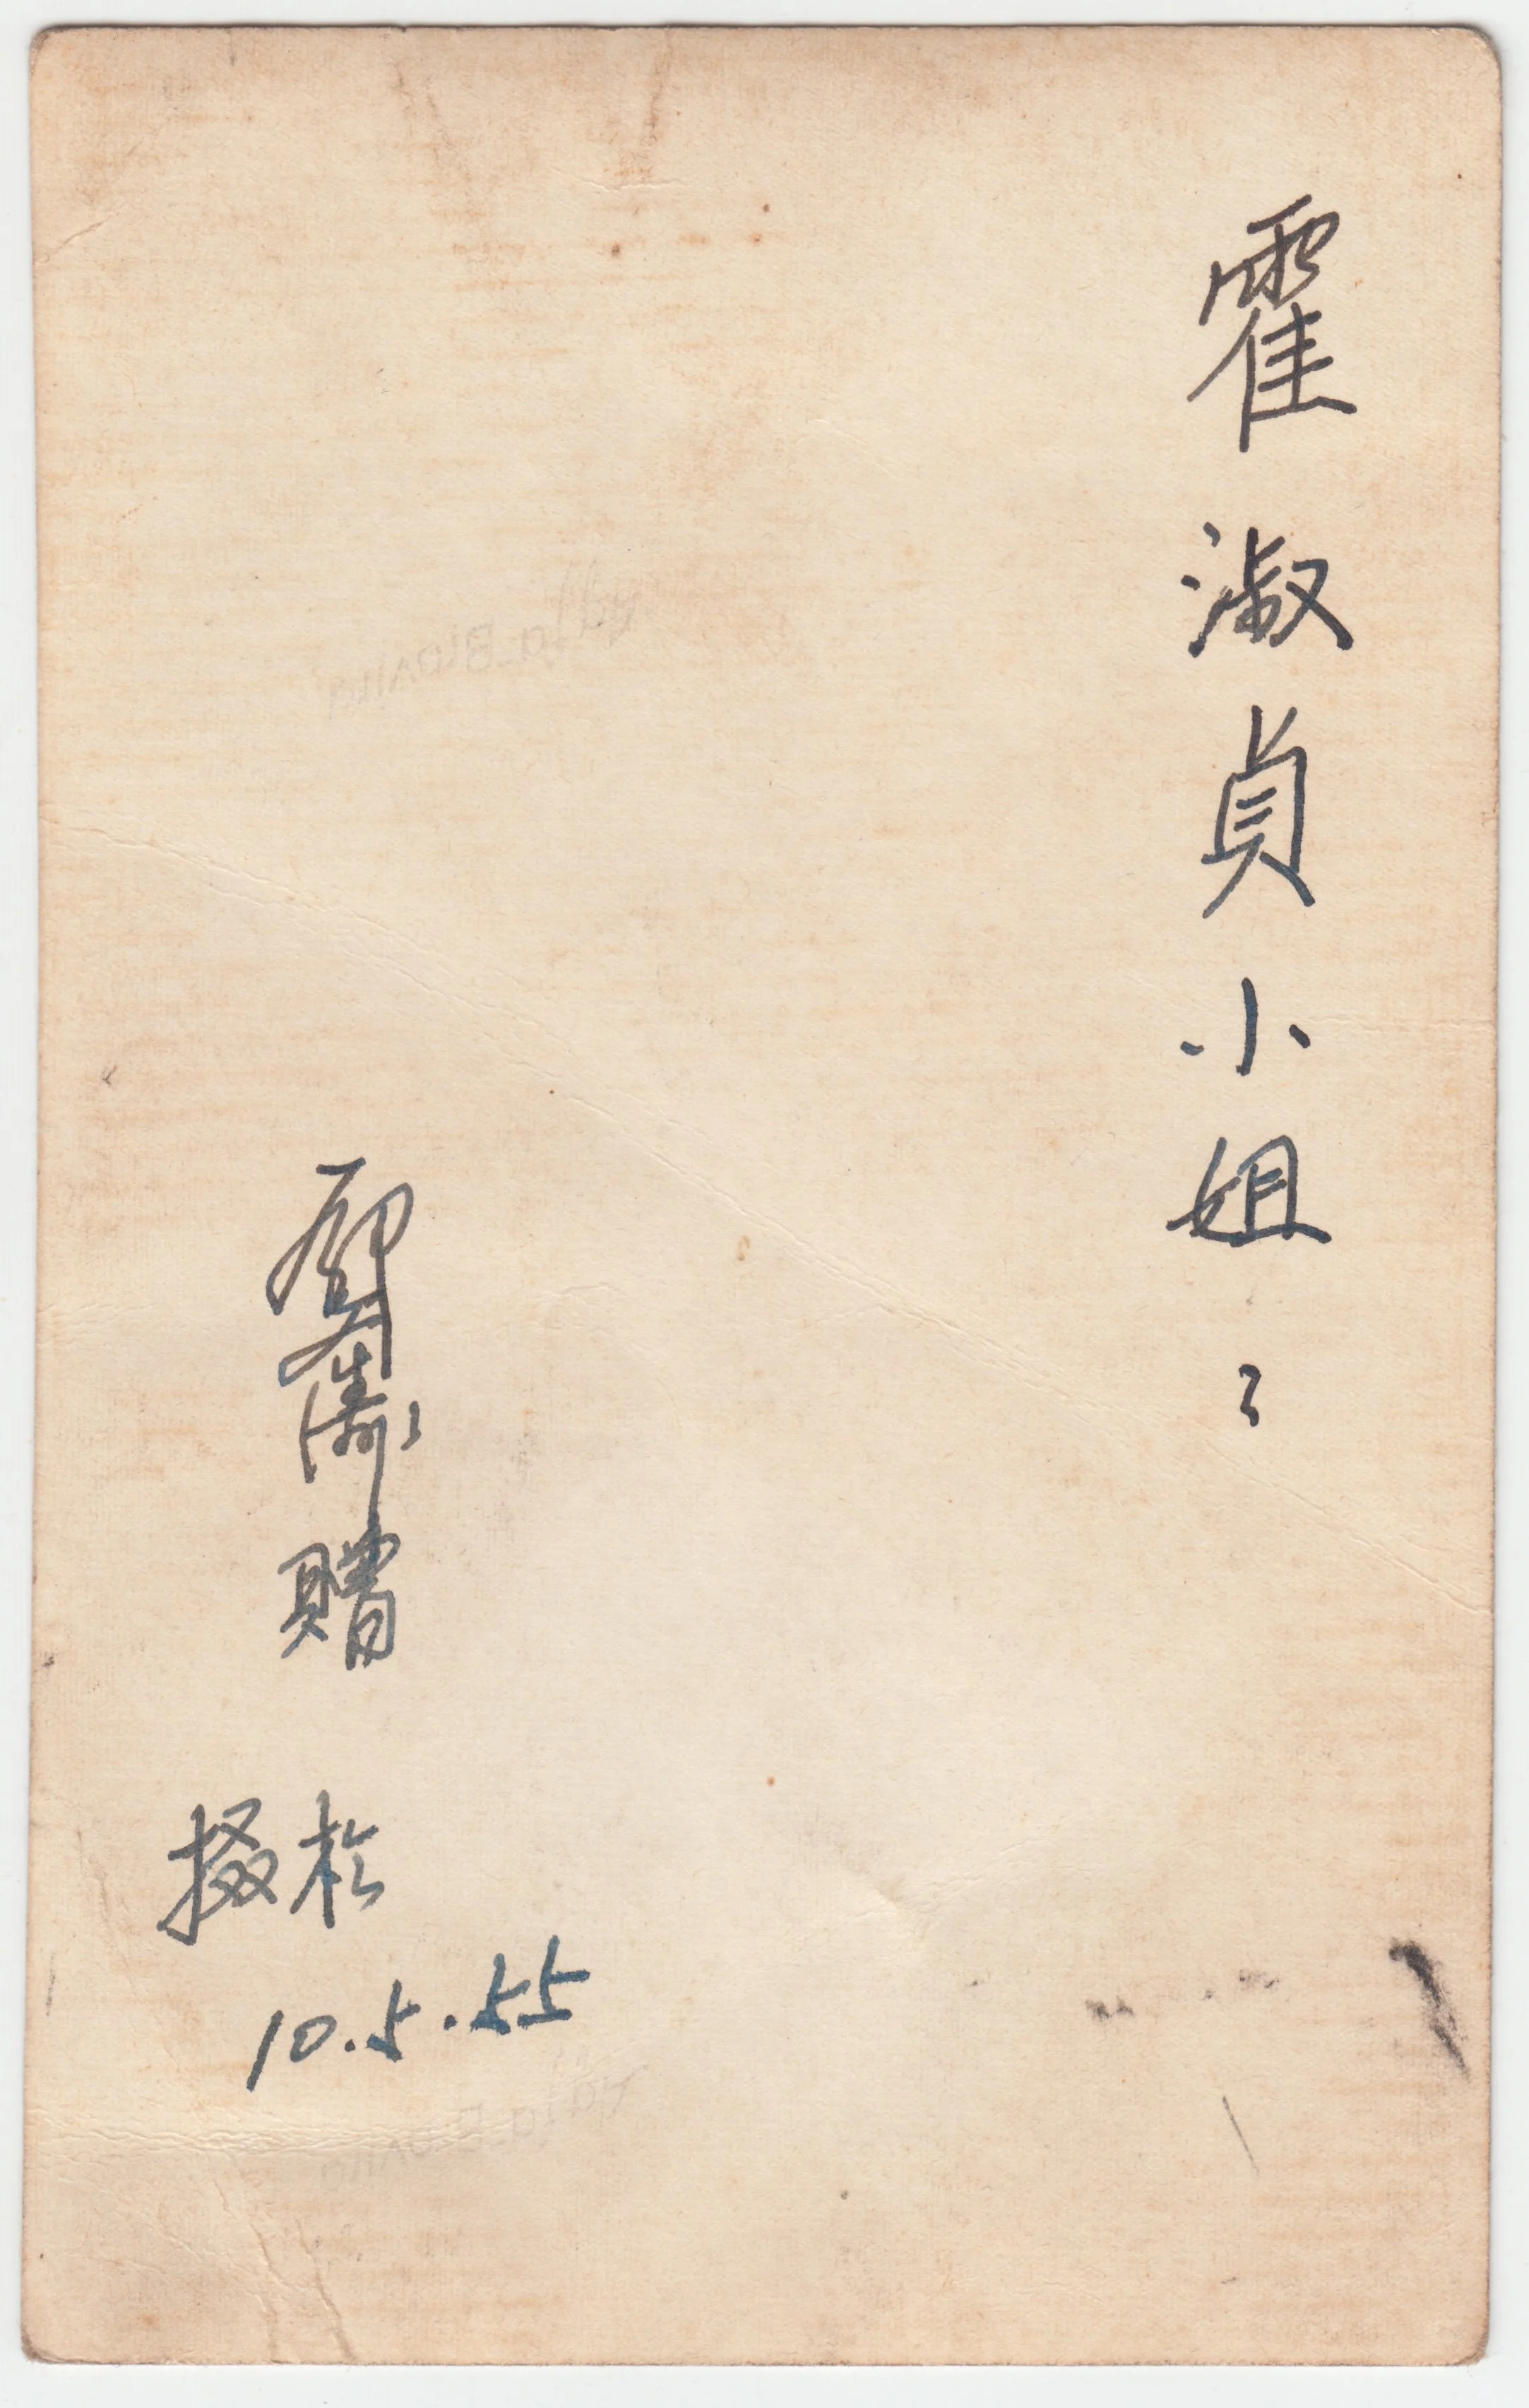 霍淑貞小姐:
贈
摄於
10.5.55